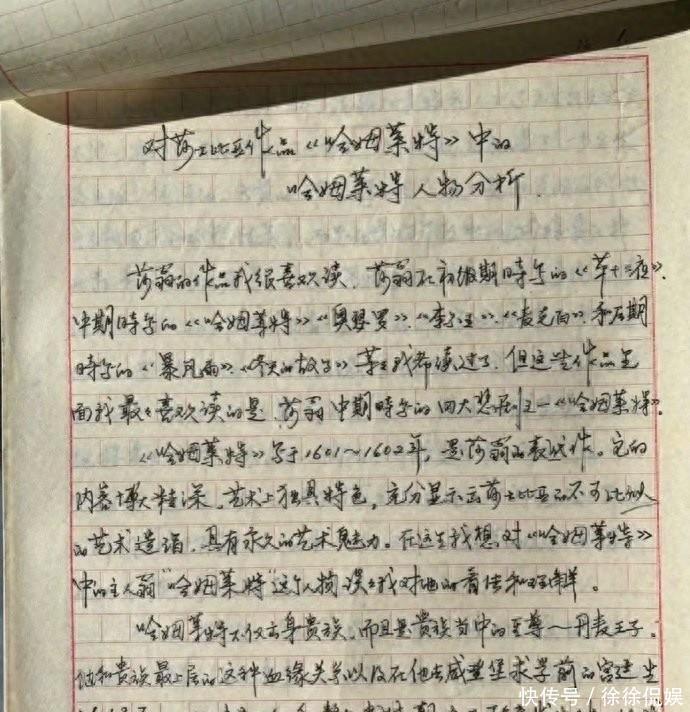 对莎士比亚作品《哈姆莱特》中的
哈姆莱特人物分析.
莎翁的作品我很喜欢读.莎翁在初级期时写的《第十二夜》.
中期时写的《哈姆莱特》《奥瑟罗》.《李尔王》.《麦克白》.和后期
时写的《暴风雨》.《冬天的故事》等等我都读过了.但这些作品里
面我最喜欢读的是.莎翁中期时写的四大悲剧之一《哈姆莱特》.
《哈姆莱特》写于1601~1602年,是莎翁的代表作。它的
内容博大精深.艺术上独具特色,充分显示出莎士比亚的不可比拟
的艺术造诣.具有永久的艺术魅力。在这里我想对《哈姆莱特》
中的主人翁"哈姆莱特"这个人物谈谈我对他的看法和理解。
哈姆莱特不仅出身贵族.而且是贵族当中的至尊——丹麦王子.
他和贵族最上层的这种血缘关系以及在他去威登堡求学前的宫廷生
快传号/徐徐侃娱